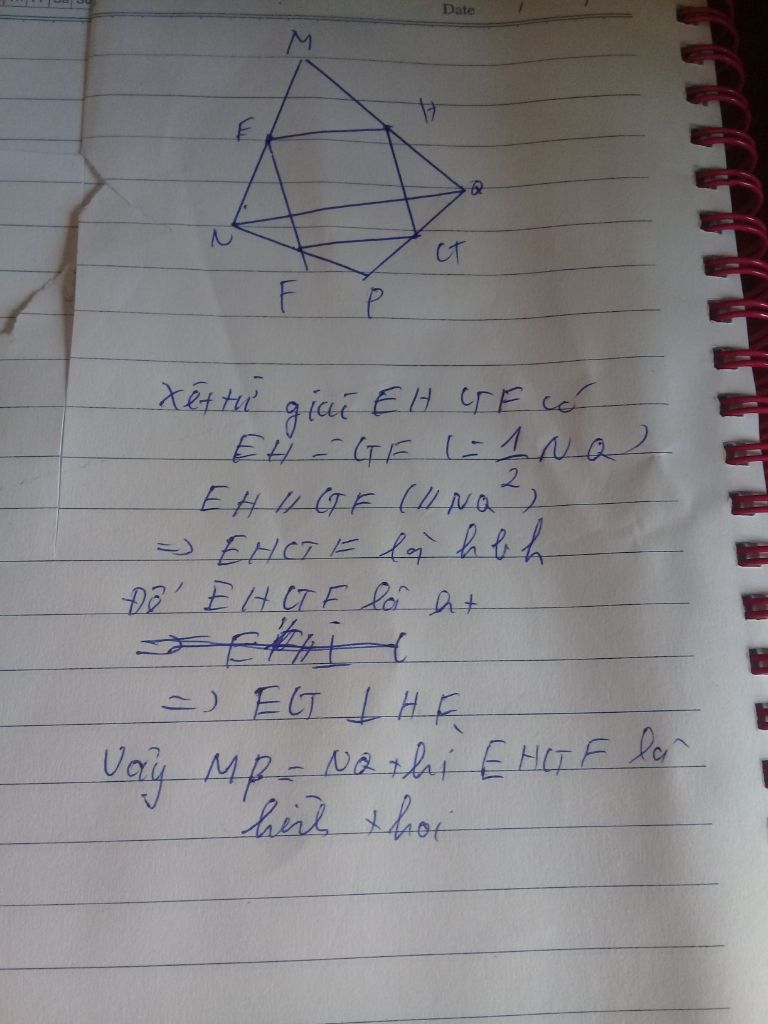 Date
M
E
H
Q
N
G
F
P
Xét tứ giác EHGF có
EH = GF (= 1/2 NQ)
EH // GF (// NQ)
=> EHGF là hbh
Để EHGF là ht
=> EG ⊥ HF
Vậy MP = NQ thì EHGF là
hình thoi